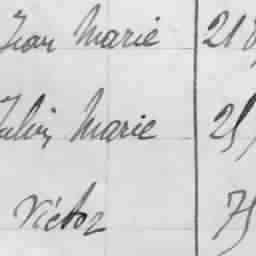 Jean Marie 218
Julien Marie 25
Victor 75